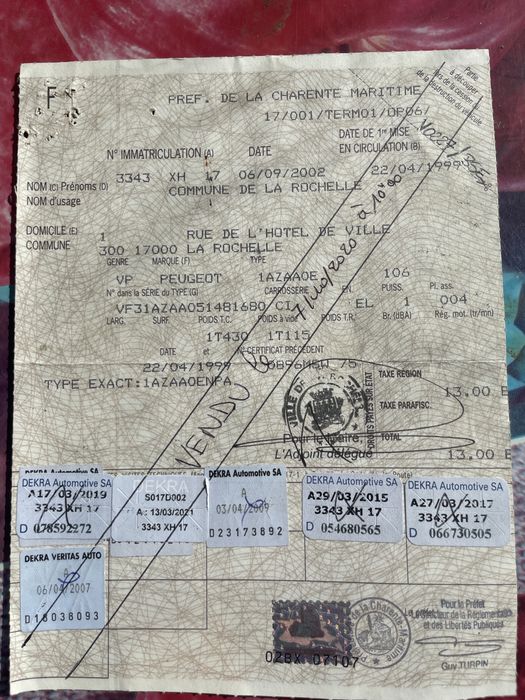 F
Partie
à découper
lors de la cession
de la destruction du véhicule
PREF. DE LA CHARENTE MARITIME
17/001/TERM01/OP06/
N° IMMATRICULATION (A) DATE DATE DE 1re MISE EN CIRCULATION (B)
3343 XH 17 06/09/2002 22/04/1999
NOM (C) Prénoms (D) COMMUNE DE LA ROCHELLE
NOM d'usage
DOMICILE (E) 1 RUE DE L'HOTEL DE VILLE
COMMUNE 300 17000 LA ROCHELLE
GENRE MARQUE (F) TYPE
VP PEUGEOT 1AZAAOE 106
N° dans la SÉRIE du TYPE (G) CARROSSERIE EN PUISS. Pl. ass.
VF31AZAA051481680 CI EL 1 004
LARG. SURF. POIDS T.C. POIDS à vide POIDS T.R. Br. (dBA) Rég. mot. (tr/mn)
1T430 1T115
DATE et N° CERTIFICAT PRÉCÉDENT
22/04/1999 0896MSW 75
TYPE EXACT:1AZAAOENPA
VENDU le
à 10h00
TAXE RÉGION 13.00 E
TAXE PARAFISC.
DROITS PAYÉS SUR ÉTAT
TOTAL 13.00 E
VILLE DE LA ROCHELLE
Pour le Maire,
L'Adjoint délégué
DEKRA Automotive SA
A17/03/2019
3343 XH 17
D 078592272
DEKRA
S017D002
A : 13/03/2021
3343 XH 17
DEKRA Automotive SA
A
03/04/2009
D23173892
DEKRA Automotive SA
A29/03/2015
3343 XH 17
D 054680565
DEKRA Automotive SA
A27/03/2017
3343 XH 17
D 066730505
DEKRA VERITAS AUTO
A
06/04/2007
D18038093
02BX 07107
de la Charente-Maritime
Pour le Préfet
Le Directeur de la Réglementation
et des Libertés Publiques
Guy TURPIN